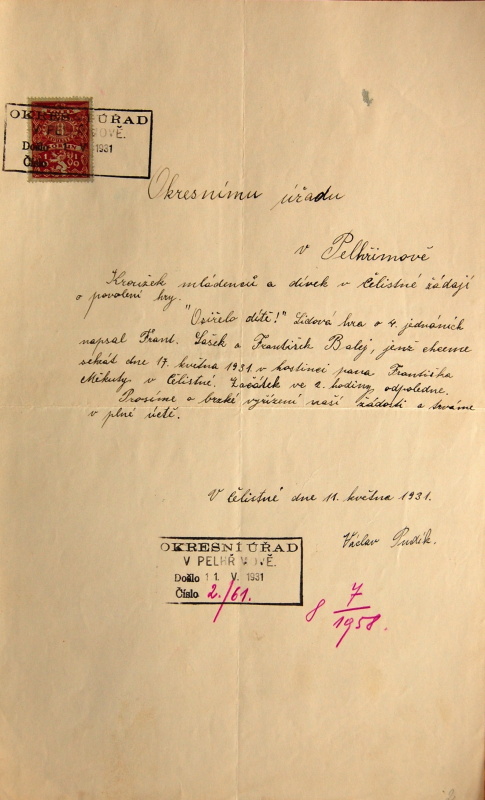 OKRESNÍ ÚŘAD
V PELHŘIMOVĚ.
Došlo 11. V. 1931
Číslo
Okresnímu úřadu
v Pelhřimově
Kroužek mládenců a dívek v Čelistné žádají
o povolení hry.
"Osiřelo dítě!" Lidová hra o 4. jednáních
napsal Frant. Lášek a František Balej, jenž chceme
sehát dne 17. května 1931 v hostinci pana Františka
Měkuty v Čelistné. Začátek ve 2. hodiny odpoledne.
Prosíme o brzké vyřízení naší žádosti a trváme
v plné úctě.
V Čelistné dne 11. května 1931.
Václav Pudik.
OKRESNÍ ÚŘAD
V PELHŘIMOVĚ.
Došlo 11. V. 1931
Číslo 2./61.
8 7/1958.